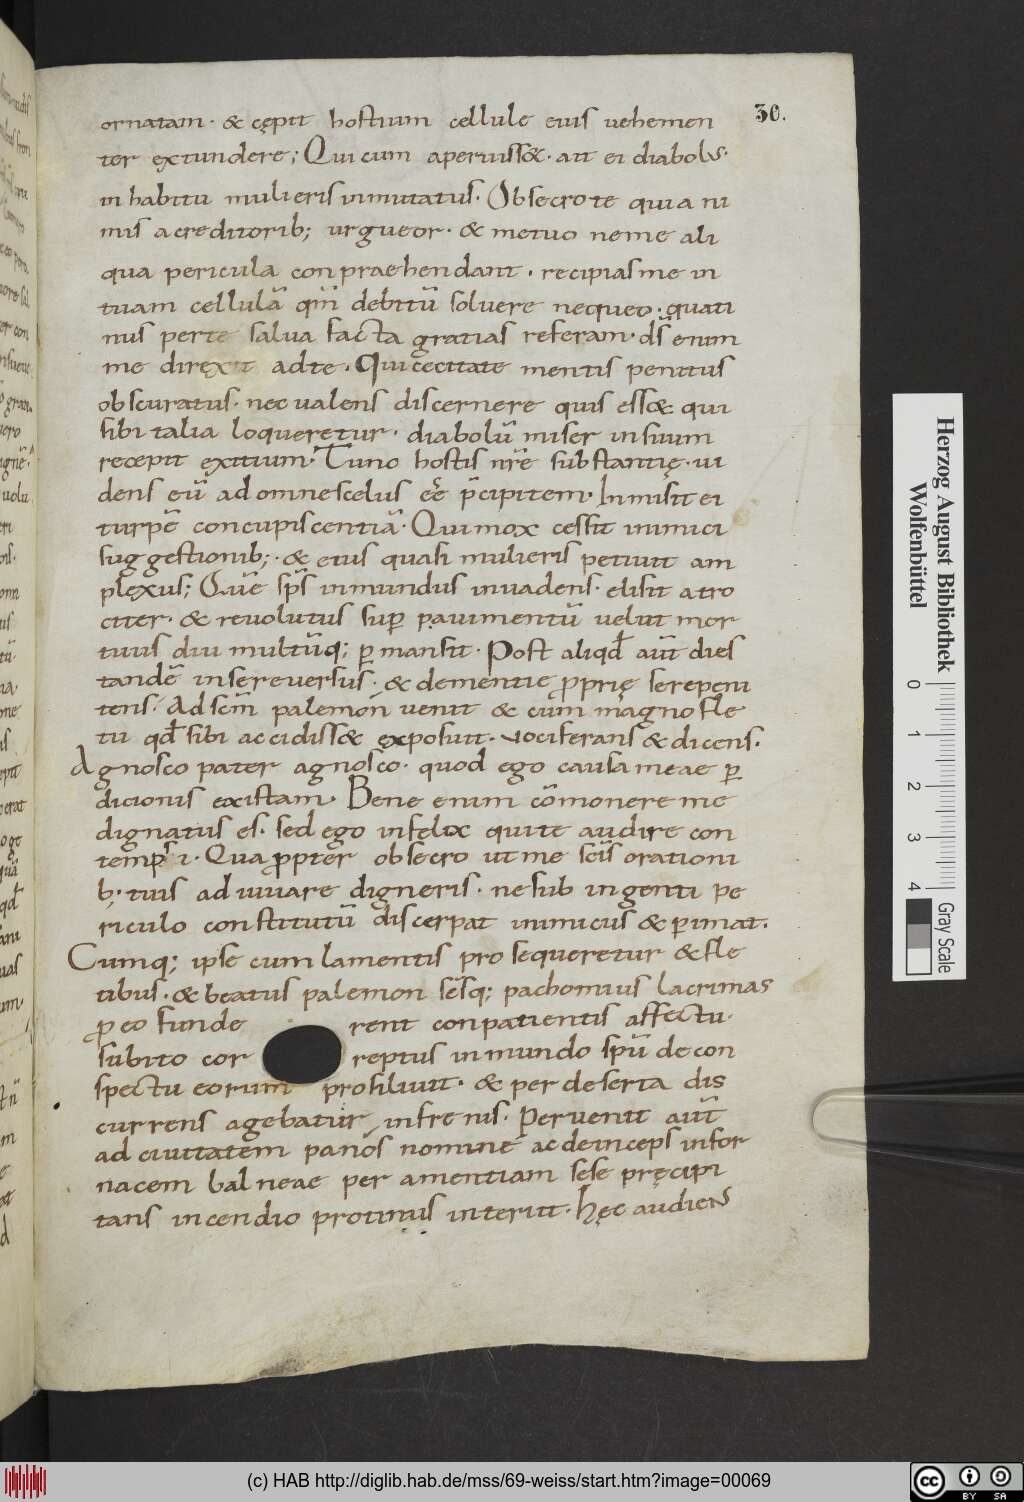 30.
ornatam · & cępit hostium cellule eius uehemen
ter extundere; Qui cum aperuiss&· ait ei diabolus·
in habitu mulieris inmutatus· Obsecro te quia ni
mis a creditorib; urgueor· & metuo ne me ali
qua pericula conpraehendant · recipias me in
tuam cellulā qm̄ debitū soluere nequeo· quati
nus per te salua facta gratias referam· ds̄ enim
me direxit ad te · Qui cecitate mentis penitus
obscuratus· nec ualens discernere quis ess& qui
sibi talia loqueretur· diabolū miser in suum
recepit exitium· Tunc hostis nr̄e substantię· ui
dens eū ad omne scelus eē p̄cipitem· Inmisit ei
turpē concupiscentiā· Qui mox cessit inimici
suggestionib;· & eius quasi mulieris petiuit am
plexus; Quē sp̄s inmundus inuadens· elisit atro
citer· & reuolutus sup̱ pauimentū uelut mor
tuus diu multūq; p̱mansit· Post aliqd̄ aūt dies
tandē in se reuersus· & dementie ꝓprię se repeni
tens· Ad sc̄m palemón uenit & cum magno fle
tu qd̄ sibi accidiss& exposuit· uociferans & dicens·
Agnosco pater agnosco· quod ego causa meae p̱
dicionis existam· Bene enim cōmonere me
dignatus es· sed ego infelix qui te audire con
temps i· Quapropter obsecro ut me sc̄is orationi
b; tuis adiuuare digneris· ne sub ingenti pe
riculo constitutū discerpat inimicus & p̱imat·
Cumq; ipse cum lamentis prosequeretur & fle
tibus· & beatus palemon sc̄sq; pachomius lacrimas
ꝓ eo funde rent conpatientis affectu·
subito cor reptus inmundo spū de con
spectu eorum prosiliuit· & per deserta dis
currens agebatur infrenis· Peruenit aūt
ad ciuitatem panós nomine ac deinceps in for
nacem balneae per amentiam sese pręcipi
tans incendio protinus interiit· hęc audiens
Herzog August Bibliothek
Wolfenbüttel
0 1 2 3 4
Gray Scale
(c) HAB http://diglib.hab.de/mss/69-weiss/start.htm?image=00069
cc BY SA